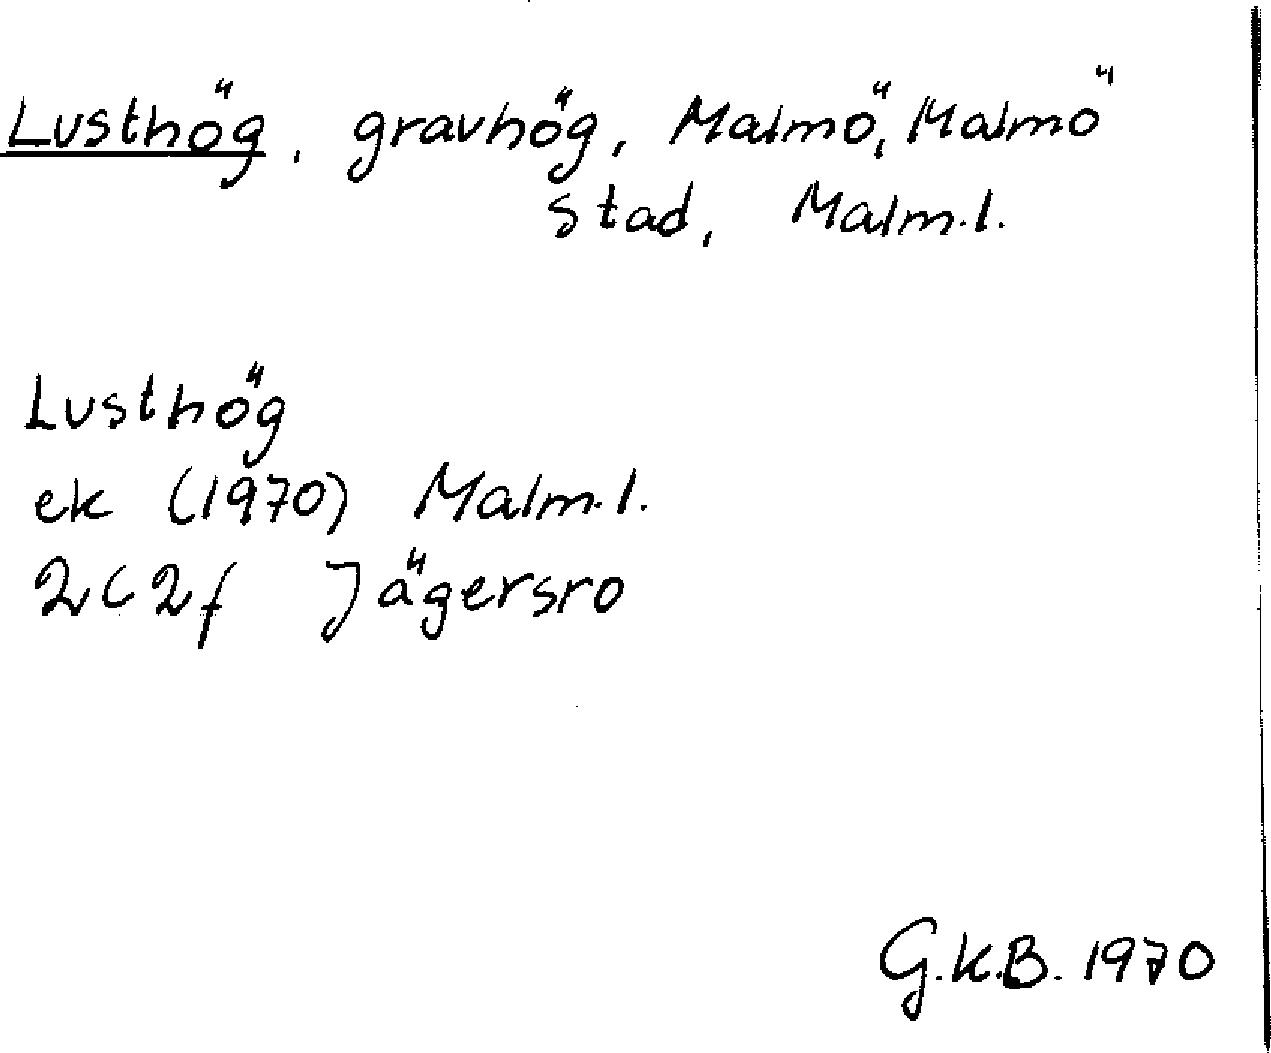 Lusthög, gravhög, Malmö, Malmö
stad, Malm.l.
Lusthög
ek (1970) Malm.l.
2C2f Jägersro
G.K.B. 1970